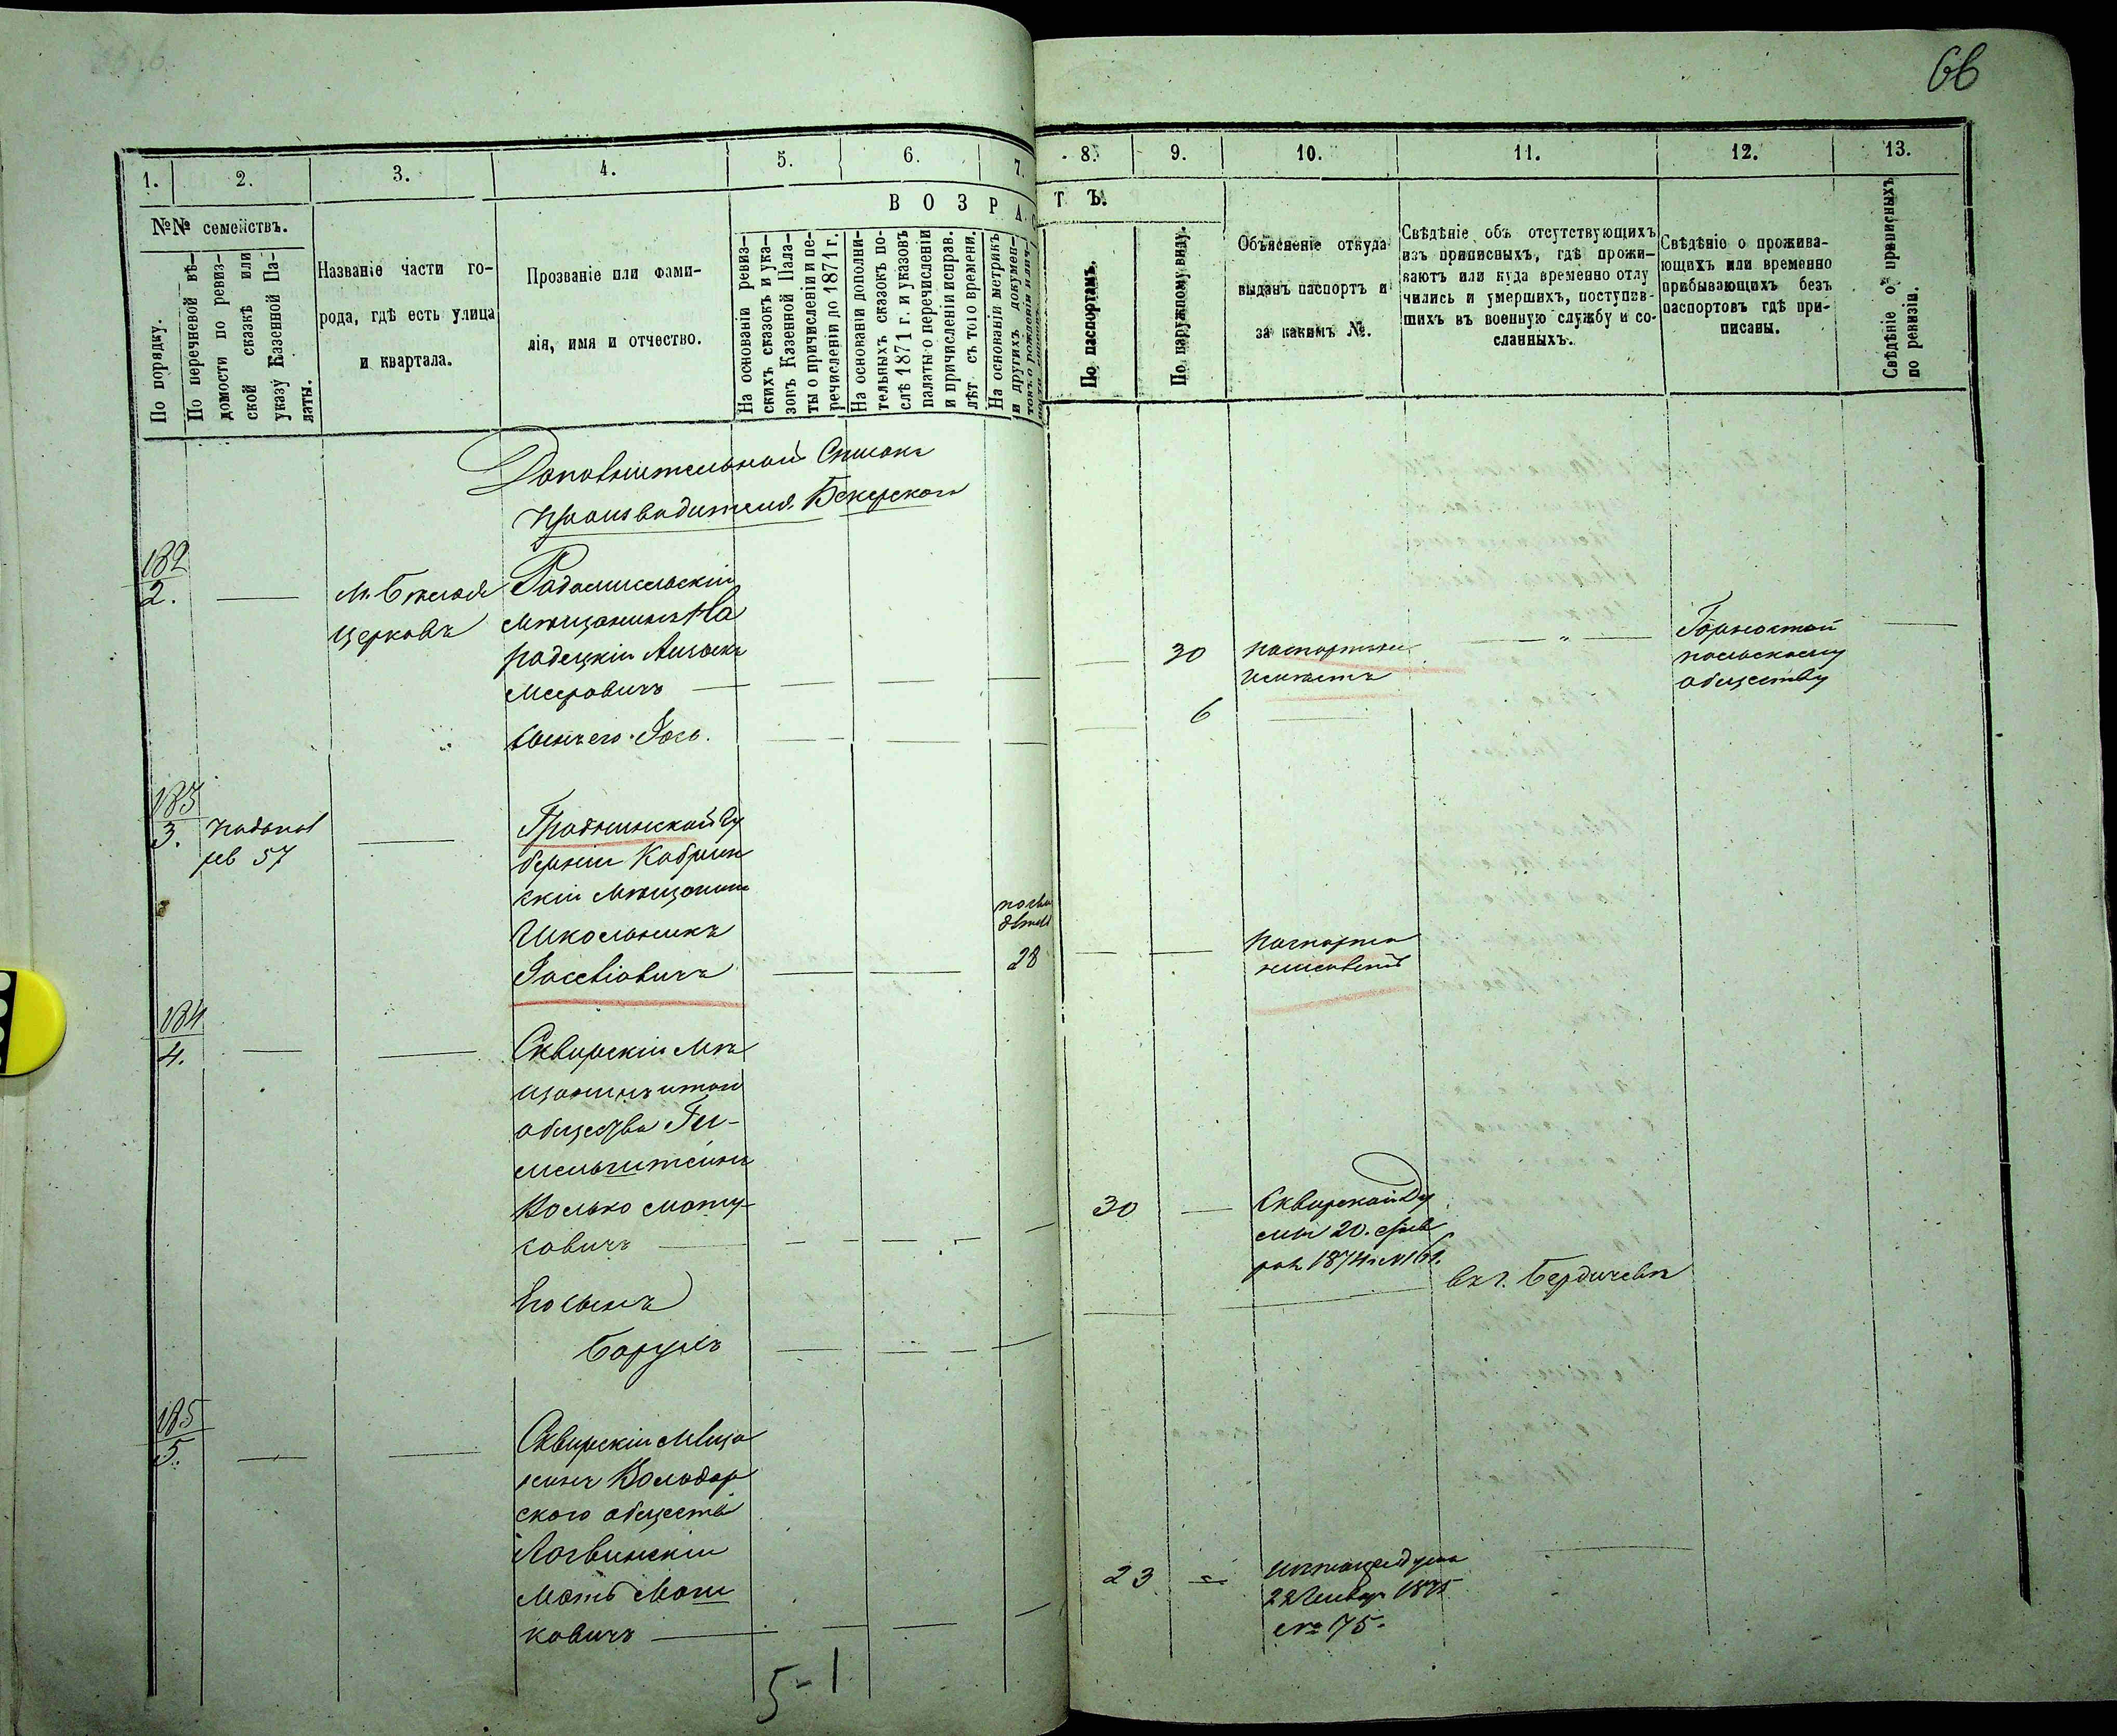 66
1. 2. 3. 4. 5. 6. 7. 8. 9. 10. 11. 12. 13.
В О З Р А С Т Ъ.
№№ семействъ.
По порядку.
По перечневой вѣ-
домости по ревиз-
ской сказкѣ или
указу Казенной Па-
латы.
Названіе части го-
рода, гдѣ есть улица
и квартала.
Прозваніе или фами-
лія, имя и отчество.
На основаніи ревиз-
скихъ сказокъ и ука-
зокъ Казенной Пала-
ты о причисленіи и пе-
речисленіи до 1871 г.
На основаніи дополни-
тельныхъ сказокъ по-
слѣ 1871 г. и указовъ
палаты о перечисленіи
и причисленіи исправ.
лѣт съ того времени.
На основаніи метрикъ
и другихъ докумен-
товъ о рожденіи
По паспортамъ.
По наружному виду.
Объясненіе откуда
выданъ паспортъ и
за какимъ №.
Свѣдѣніе объ отсутствующихъ
изъ приписныхъ, гдѣ прожи-
ваютъ или куда временно отлу
чились и умершихъ, поступив-
шихъ въ военную службу и со-
сланныхъ.
Свѣдѣніе о прожива-
ющихъ или временно
прибывающихъ безъ
паспортовъ гдѣ при-
писаны.
Свѣдѣніе о приписныхъ
по ревизіи.
Дополнительный Списокъ
производителя
182
2. — М. Бѣлая
Церковь
Радомысльскій
мѣщанинъ На
родецкій
Мееровичъ — — — — — 30 паспорта не
имѣетъ — " — Горностай
польскому
обществу —
" сынъ его Іось. — — — — 6 —
183
3. 57 —
Гродненской Гу
берніи Кобрин
скій мѣщанинъ
Школьникъ
Іосевіовичъ — — 28 — — Паспорта
184
4. — —
Сквирскій мѣ
щанинъ
общества Ги-
мельштейнъ
Волько
ковичъ — — — — — 30 — Сквирской Ду
мы 20. Фев
рал. 1874
Его сынъ
Борухъ — — — — — въ г. Бердичевѣ
185
5. — —
Сквирскій мѣща
нинъ Володар
скаго общества
Логвинскій
Моть Мош
ковичъ — — — — 23 —
22 Январ 1875
№ 175. —
5-1